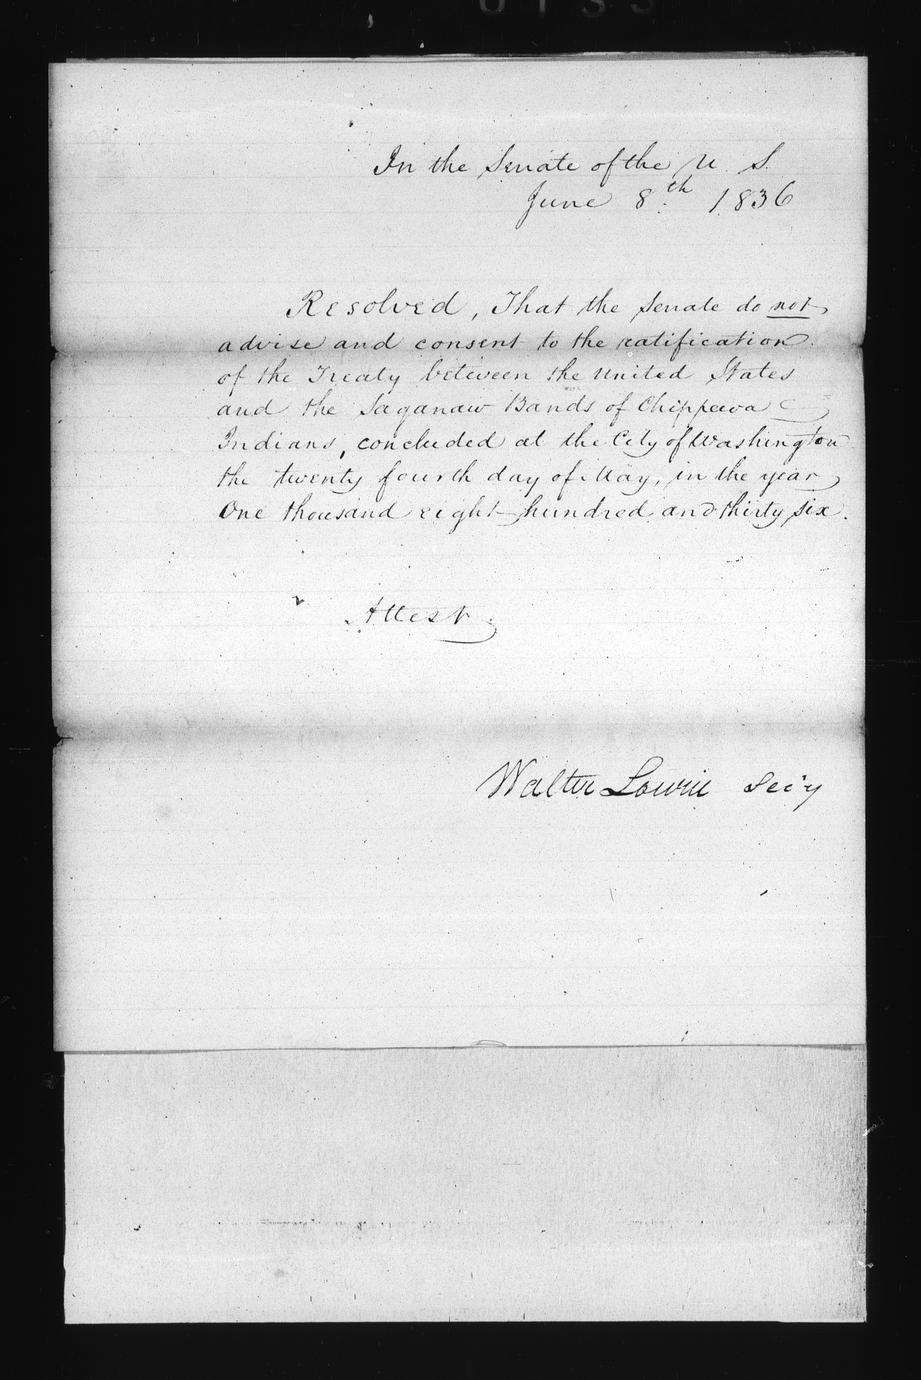 In the Senate of the U. S.
June 8.th 1836
Resolved, That the Senate do not
advise and consent to the ratification
of the Treaty between the United States
and the Saganaw Bands of Chippewa
Indians, concluded at the City of Washington
the twenty fourth day of May, in the year
One thousand eight hundred and thirty six.
Attest
Walter Lowrie Sec'y